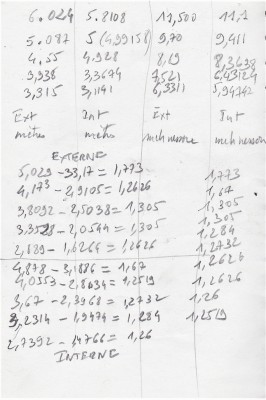 6.024 5.8108 11,500 11,1
5.087 5(4,99158) 9,70 9,411
4.55 4,928 8,19 8,3638
3,938 3,3674 7,521 6,43124
3,315 3,1141 6,3311 5,94742
Ext Int Ext Int
mètres mètres
EXTERNE
5,029 - 33,17 = 1,773 1,773
4,173 - 2,9105 = 1,2626 1,67
3,8092 - 2,5038 = 1,305 1,305
3,3528 - 2,0544 = 1,305 1,305
2,889 - 1,6264 = 1,2626 1,284
4,878 - 3,1886 = 1,67 1,2732
4,0553 - 2,8034 = 1,2519 1,2626
3,67 - 2,3968 = 1,2732 1,2626
3,2314 - 1,9474 = 1,284 1,26
2,7392 - 1,4766 = 1,26 1,2519
INTERNE